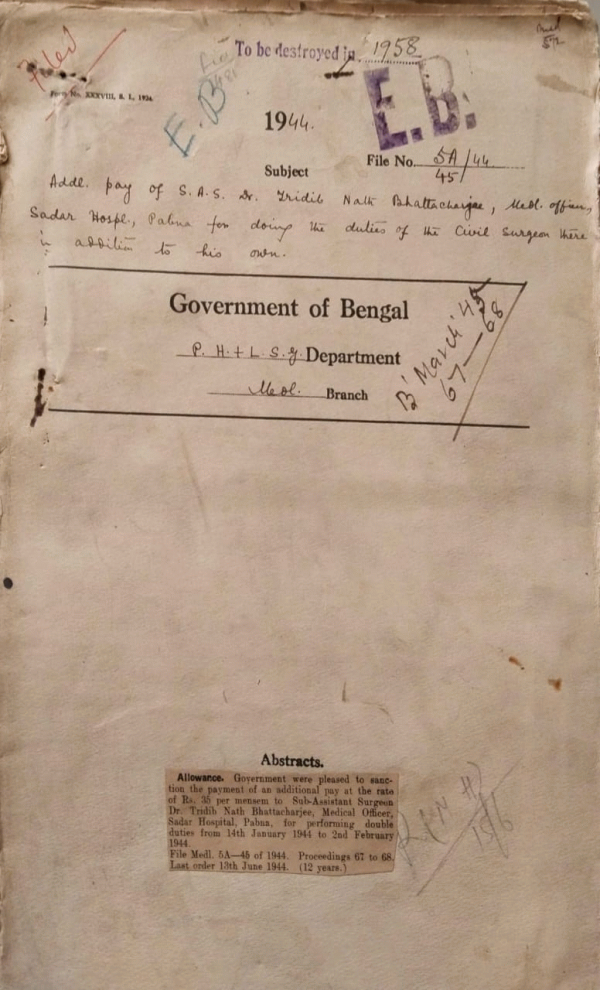 Filed
To be destroyed in 1958
Form No. XXXVIII, S. I, 1934.
E. B
E.B.
1944.
Subject
File No. 5A/44
45
Addl. pay of S.A.S. Dr. Tridib Nath Bhattacharjee, Medl. officer,
Sadar Hospl., Pabna for doing the duties of the Civil Surgeon there
in addition to his own.
Government of Bengal
P. H. + L. S. G. Department
Medl. Branch
B' March '45
67—68
Abstracts.
Allowance. Government were pleased to sanc-
tion the payment of an additional pay at the rate
of Rs. 35 per mensem to Sub-Assistant Surgeon
Dr. Tridib Nath Bhattacharjee, Medical Officer,
Sadar Hospital, Pabna, for performing double
duties from 14th January 1944 to 2nd February
1944.
File Medl. 5A—45 of 1944. Proceedings 67 to 68.
Last order 13th June 1944. (12 years.)